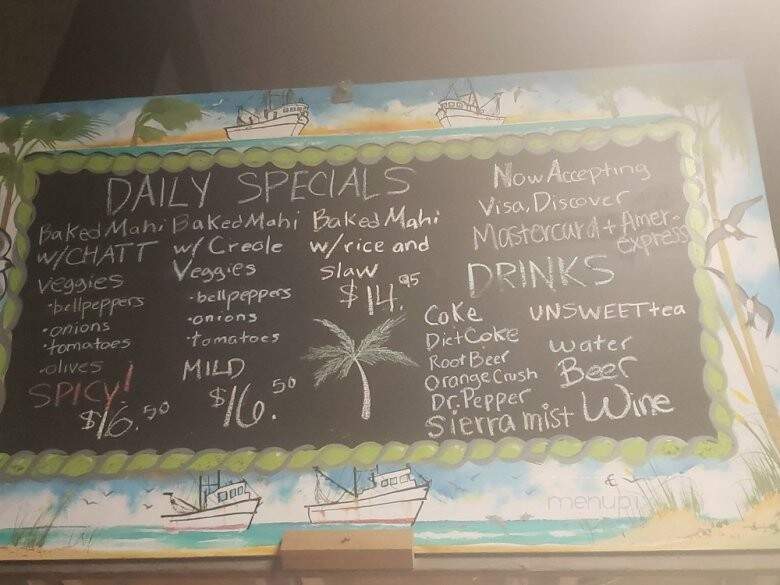 DAILY SPECIALS
Baked Mahi
w/CHATT
veggies
•bellpeppers
•onions
•tomatoes
•olives
SPICY!
$16.50
Baked Mahi
w/ Creole
Veggies
•bellpeppers
•onions
•tomatoes
MILD
$16.50
Baked Mahi
w/rice and
slaw
$14.95
Now Accepting
Visa, Discover
Mastercard + Amer-
express
DRINKS
Coke
Diet Coke
Root Beer
Orange Crush
Dr. Pepper
Sierra mist
UNSWEET tea
water
Beer
Wine
menupix